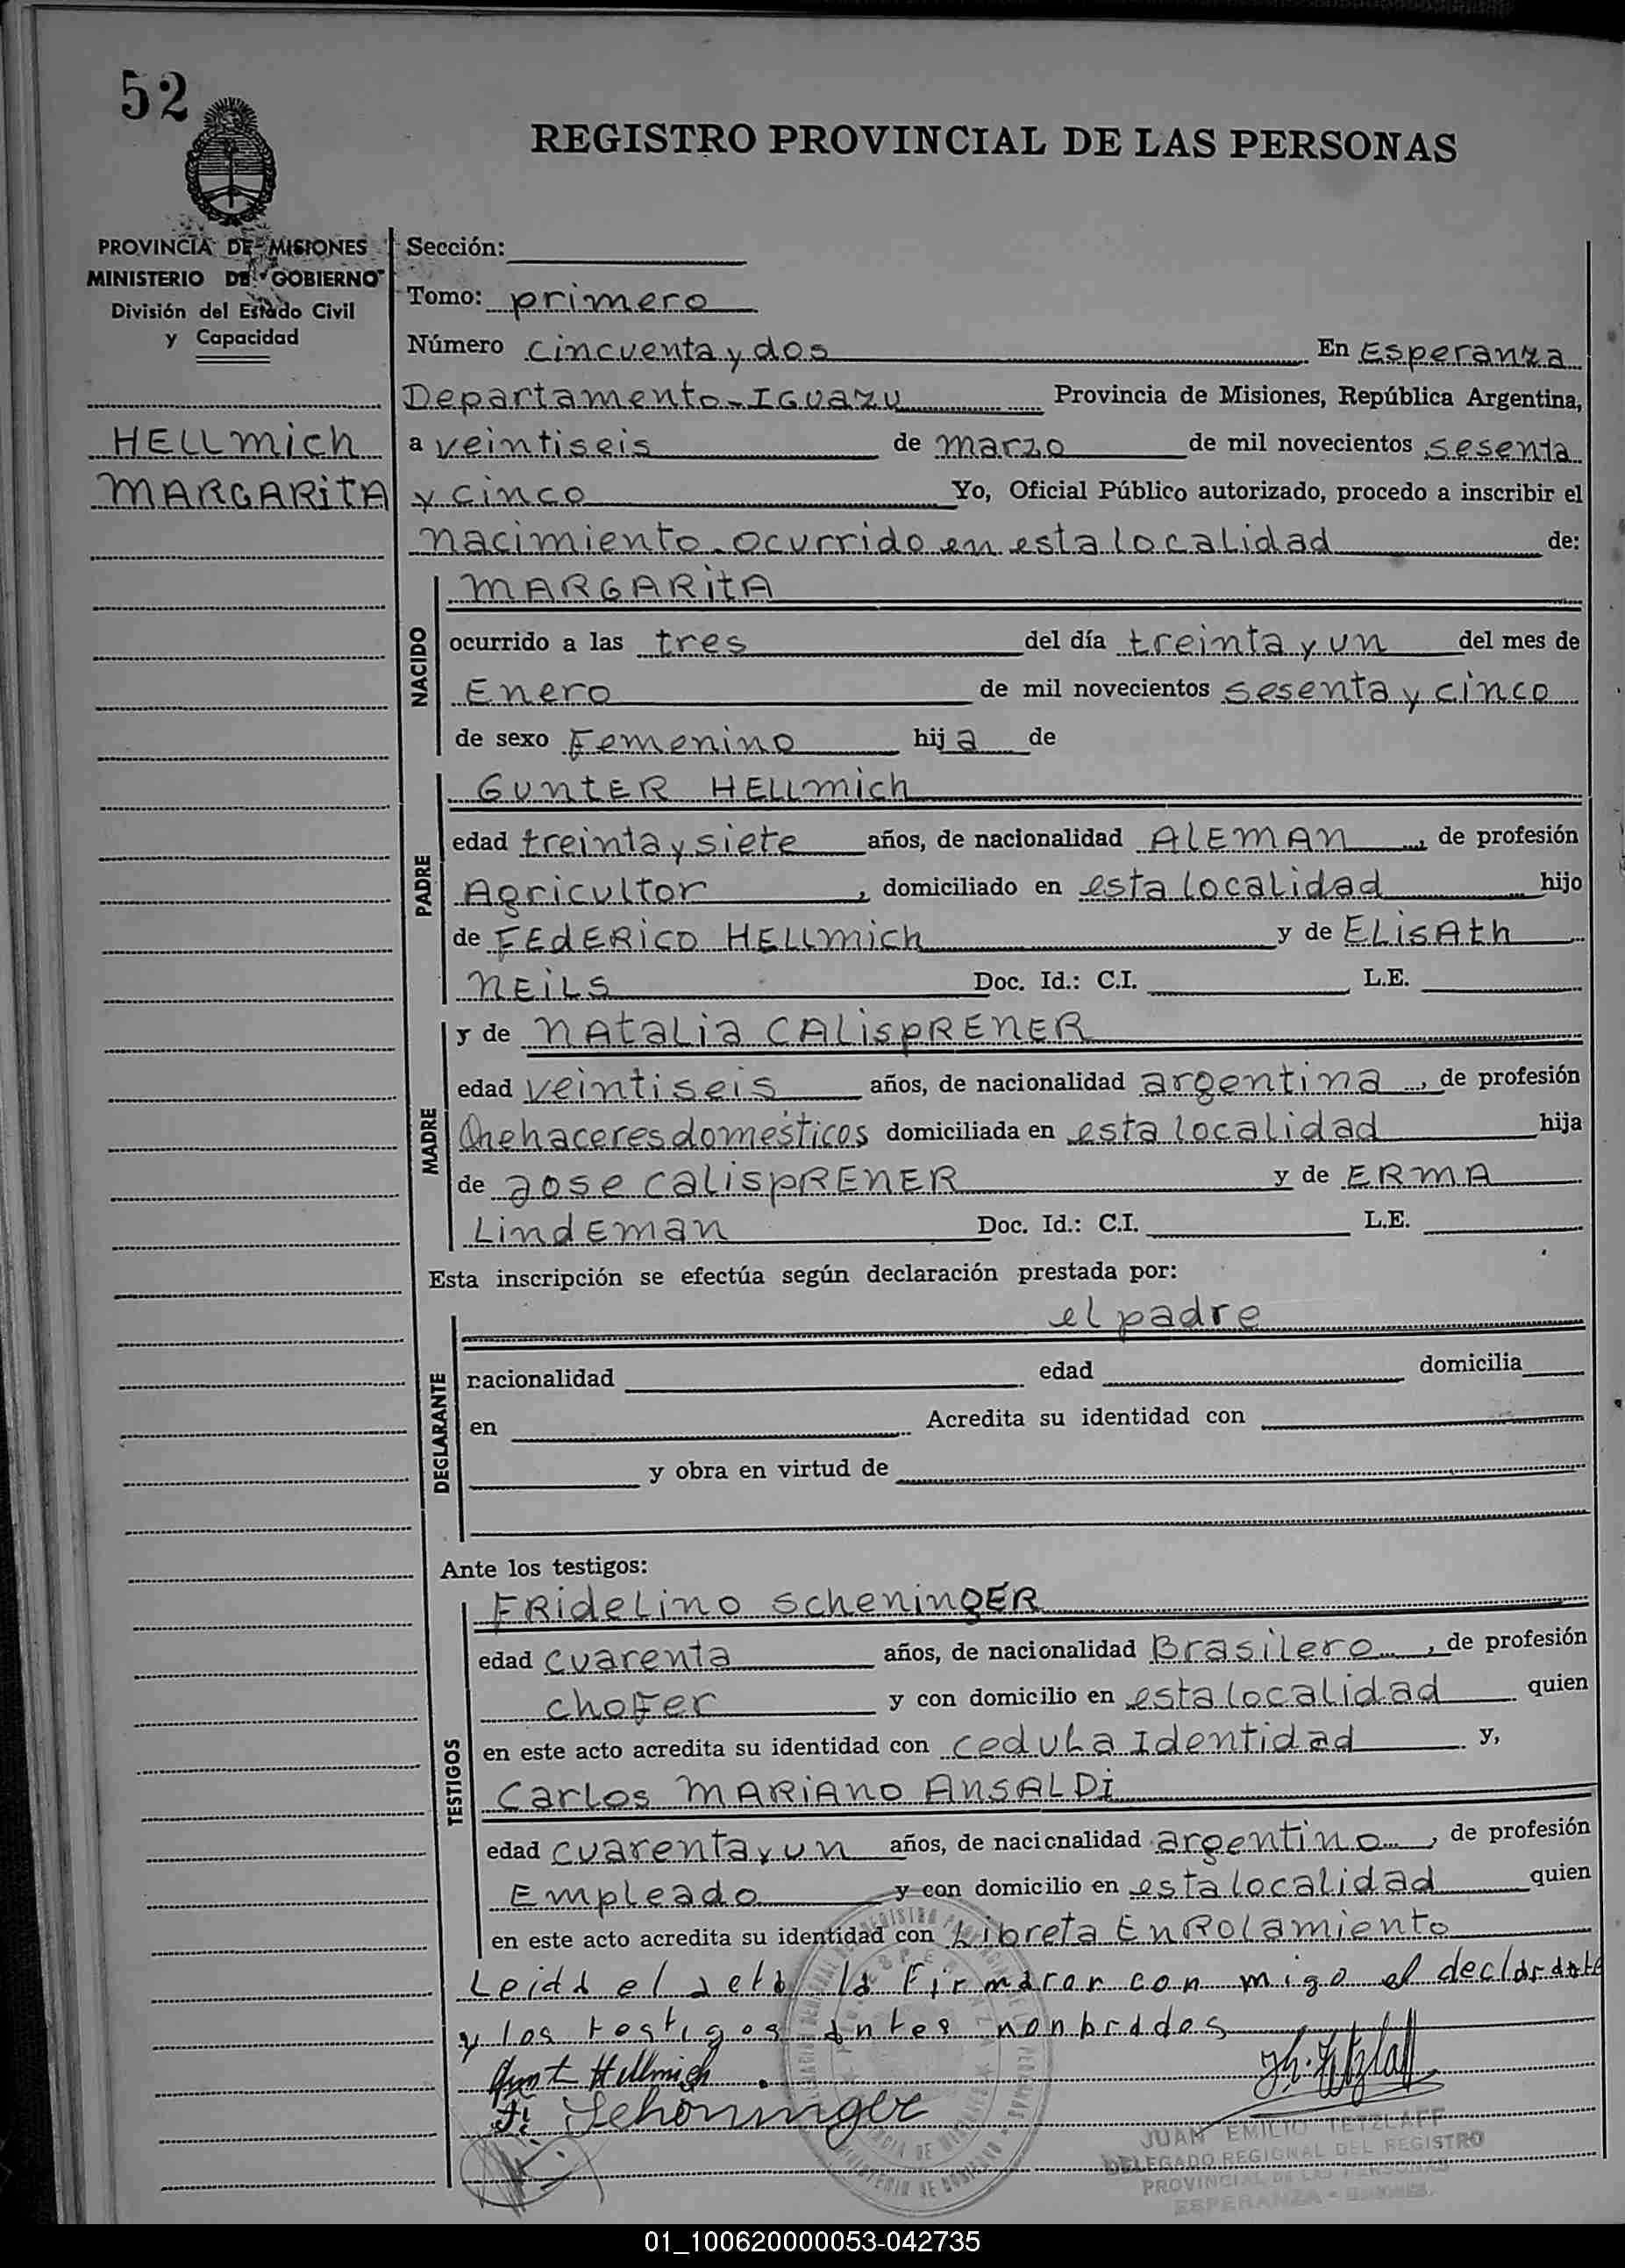 52
REGISTRO PROVINCIAL DE LAS PERSONAS
PROVINCIA DE MISIONES
MINISTERIO DE GOBIERNO
División del Estado Civil
y Capacidad
HELLmich
MARGARiTA
Sección:
Tomo: primero
Número cincuenta y dos En Esperanza
Departamento-IGUAZU Provincia de Misiones, República Argentina,
a veintiseis de marzo de mil novecientos sesenta
y cinco Yo, Oficial Público autorizado, procedo a inscribir el
nacimiento ocurrido en esta localidad de:
NACIDO
MARGARitA
ocurrido a las tres del día treinta y un del mes de
Enero de mil novecientos sesenta y cinco
de sexo Femenino hija de
PADRE
GUntER HELLmich
edad treinta y siete años, de nacionalidad ALEMAN, de profesión
Agricultor, domiciliado en esta localidad hijo
de FEdERICO HELLmich y de ELisAth
NEiLS Doc. Id.: C.I. L.E.
MADRE
y de NAtaLia CALispRENER
edad veintiseis años, de nacionalidad argentina, de profesión
Quehaceres domésticos domiciliada en esta localidad hija
de Jose CalispRENER y de ERMA
LindEman Doc. Id.: C.I. L.E.
Esta inscripción se efectúa según declaración prestada por:
DECLARANTE
el padre
nacionalidad edad domicilia
en Acredita su identidad con
y obra en virtud de
Ante los testigos:
TESTIGOS
FRideLino scheningER
edad cuarenta años, de nacionalidad Brasilero, de profesión
choFer y con domicilio en esta localidad quien
en este acto acredita su identidad con ceduLa Identidad y,
Carlos MARiANO ANSALDi
edad cuarenta y un años, de nacionalidad argentino, de profesión
Empleado y con domicilio en esta localidad quien
en este acto acredita su identidad con Libreta EnRolamiento
Leida el acta la firmaron con migo el declarante
y los testigos antes nonbrados
Gunt Hellmich
F. Schoninger
JUAN EMILIO TETZLAFF
DELEGADO REGIONAL DEL REGISTRO
PROVINCIAL DE LAS PERSONAS
ESPERANZA - MISIONES
01_100620000053-042735